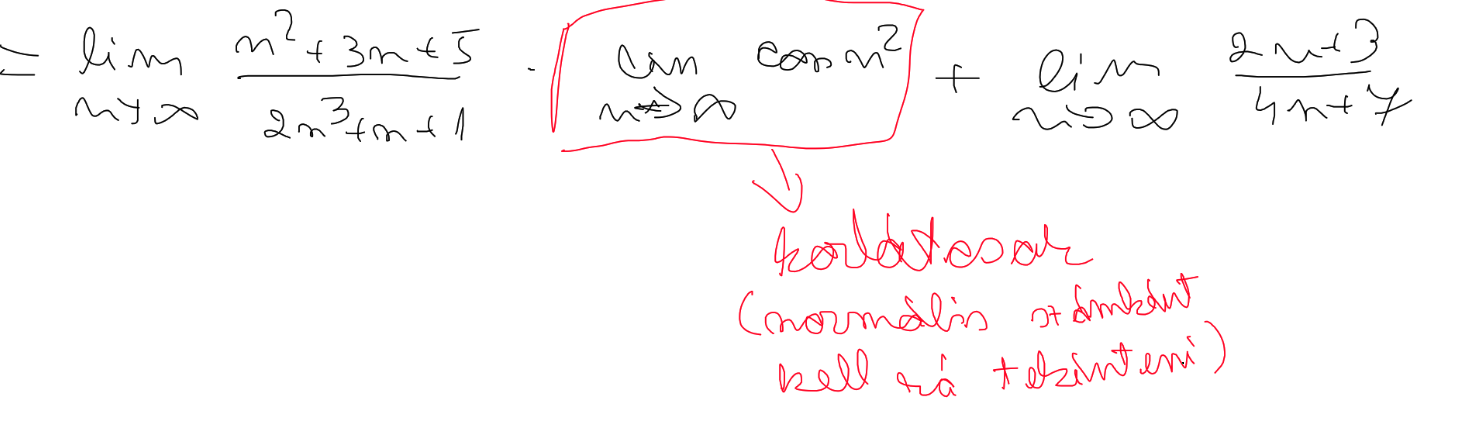 = lim n→∞ (n²+3n+5)/(2n³+n+1) · lim n→∞ cos n² + lim n→∞ (2n+3)/(4n+7)
korlátosak
(normális számként
kell rá tekinteni)